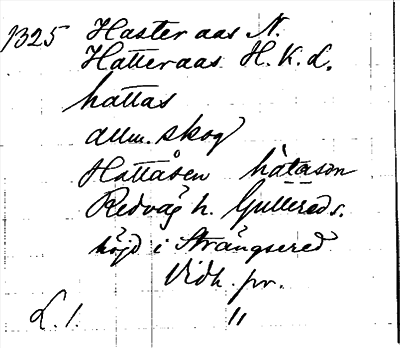 1325 Hasteraas N.
Hatteraas H. K. L.
hattas
allm. skog
Hattåsen håtåson
Redväg h. Gullereds s.
höjd i Strängsered
Vidh. pr.
L. 1. "